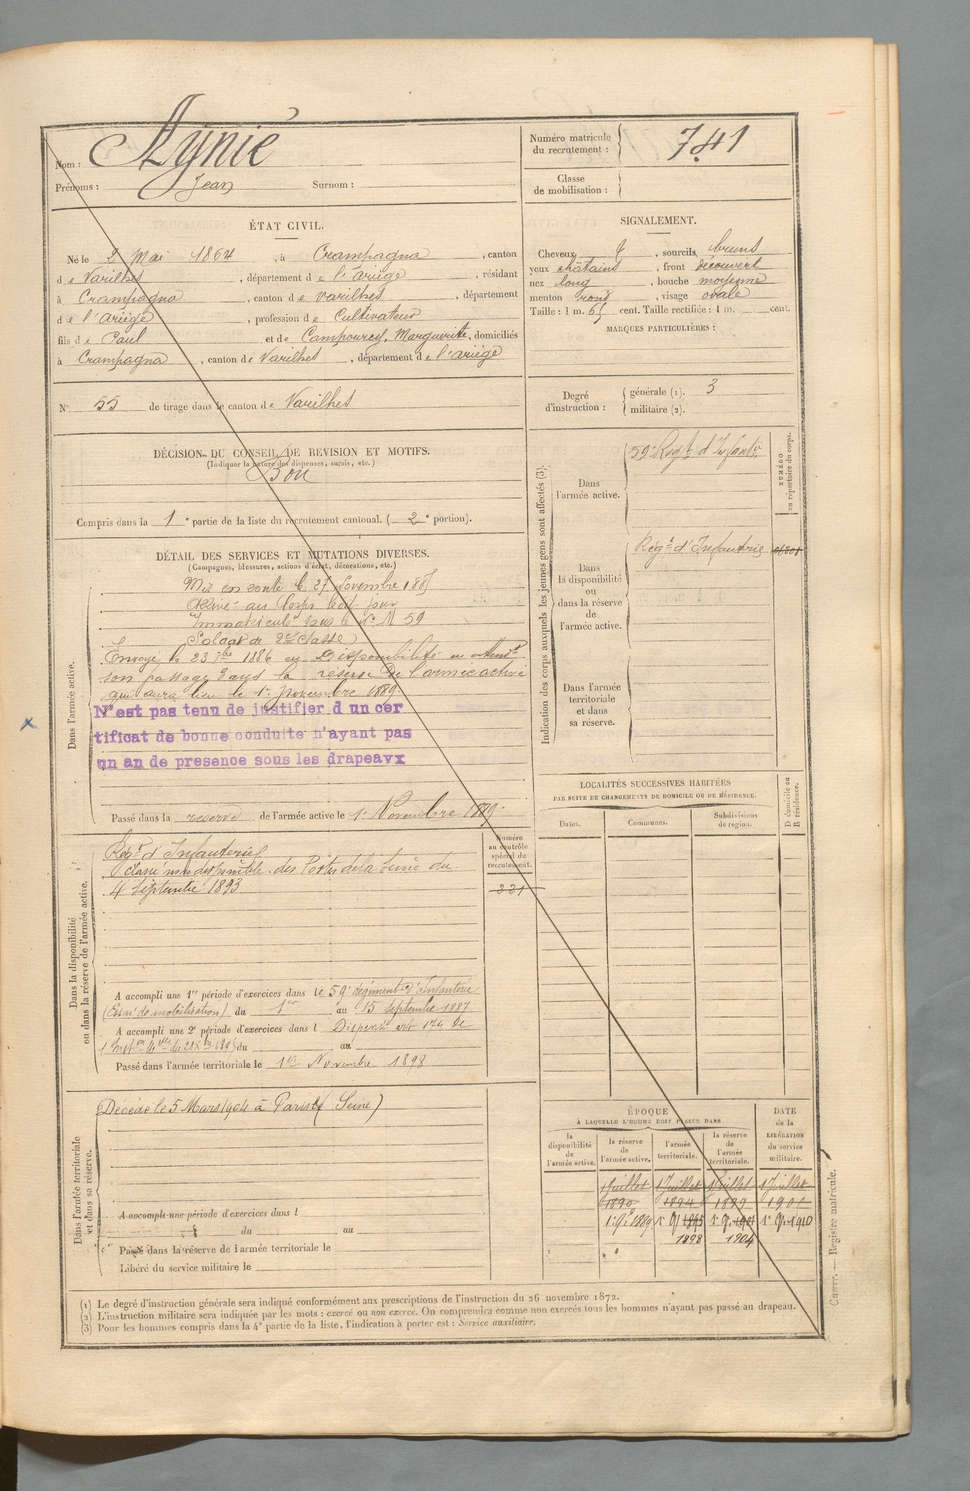 Nom : Aynié
Prénoms : Jean Surnom :
Numéro matricule du recrutement : 741
Classe de mobilisation :
ÉTAT CIVIL.
Né le 2 Mai 1864, à Crampagna, canton
de Varilhes, département de l'Ariège, résidant
à Crampagna, canton de Varilhes, département
de l'Ariège, profession de Cultivateur
fils de Paul et de Campourcy, Marguerite, domiciliés
à Crampagna, canton de Varilhes, département de l'ariège
N° 55 de tirage dans le canton de Varilhes
SIGNALEMENT.
Cheveux , sourcils bruns
yeux châtains, front découvert
nez long, bouche moyenne
menton rond, visage ovale
Taille : 1 m. 65 cent. Taille rectifiée : 1 m. cent.
MARQUES PARTICULIÈRES :
Degré d'instruction : générale (1). 3
militaire (2).
DÉCISION DU CONSEIL DE REVISION ET MOTIFS.
(Indiquer la nature des dispenses, sursis, etc.)
Bon
Compris dans la 1e partie de la liste du recrutement cantonal. (2e portion).
DÉTAIL DES SERVICES ET MUTATIONS DIVERSES.
(Campagnes, blessures, actions d'éclat, décorations, etc.)
Dans l'armée active.
Mis en route le 27 Novembre 1885
Arrivé au Corps ledit jour
Immatriculé sous le N°
Soldat de 2e classe
Envoyé le 23 7bre 1886 en Disponibilité en attendt
son passage dans la réserve de l'armée active
qui aura lieu le 1er novembre 1889
N'est pas tenu de justifier d un cer
tificat de bonne conduite n'ayant pas
un an de presence sous les drapeavx
Passé dans la réserve de l'armée active le 1er Novembre 1889
Indication des corps auxquels les jeunes gens sont affectés (3).
NUMÉRO au répertoire du corps.
Dans l'armée active.
59e Regt d'Infantie
Dans la disponibilité ou dans la réserve de l'armée active.
Regt d'Infanterie
Dans l'armée territoriale et dans sa réserve.
LOCALITÉS SUCCESSIVES HABITÉES
PAR SUITE DE CHANGEMENTS DE DOMICILE OU DE RÉSIDENCE.
Dates. Communes. Subdivisions de région. D domicile ou R résidence.
Dans la disponibilité ou dans la réserve de l'armée active.
Numéro au contrôle spécial du recrutement.
221
Regt d'Infanterie
Classé non disponible des Postes de la Seine du
4 Septembre 1893
A accompli une 1re période d'exercices dans le 59e régiment d'Infanterie
(Essai de mobilisation) du 1er au 15 septembre 1887
A accompli une 2e période d'exercices dans l Dispensé
du au
Passé dans l'armée territoriale le 1er Novembre 1898
Dans l'armée territoriale et dans sa réserve.
Décédé le 5 Mars 1904 à Paris (Seine)
A accompli une période d'exercices dans l
du au
Passé dans la réserve de l armée territoriale le
Libéré du service militaire le
ÉPOQUE
À LAQUELLE L'HOMME DOIT PASSER DANS
la disponibilité de l'armée active. la réserve de l'armée active. l'armée territoriale. la réserve de l'armée territoriale. DATE de la LIBÉRATION du service militaire.
1 Juillet 1 Juillet 1 Juillet 1 Juillet
1890 1894 1899
1898 1904
(1) Le degré d'instruction générale sera indiqué conformément aux prescriptions de l'instruction du 26 novembre 1872.
(2) L'instruction militaire sera indiquée par les mots : exercé ou non exercé. On comprendra comme non exercés tous les hommes n'ayant pas passé au drapeau.
(3) Pour les hommes compris dans la 4e partie de la liste, l'indication à porter est : Service auxiliaire.
— Registre matricule.